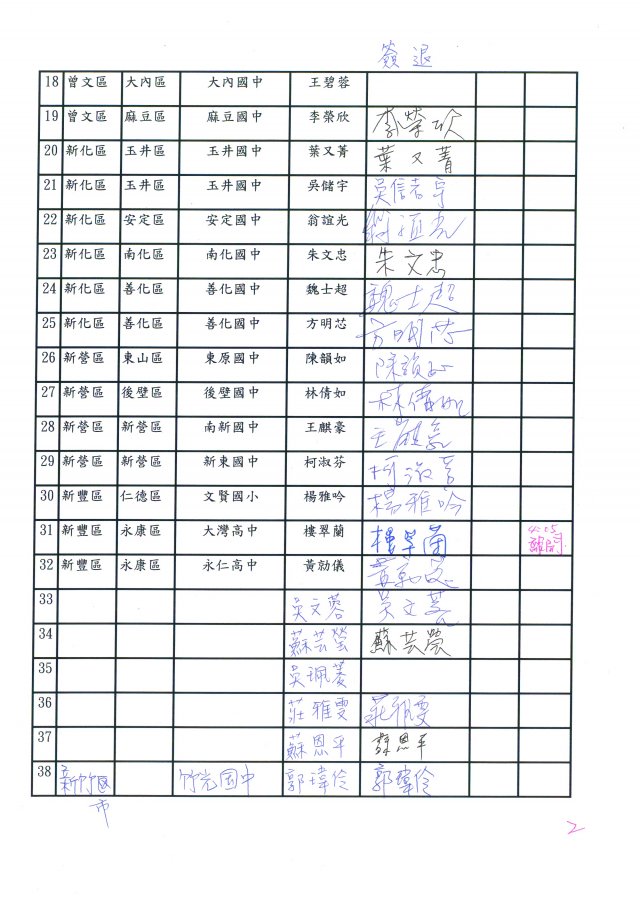 簽退
18 曾文區 大內區 大內國中 王碧蓉
19 曾文區 麻豆區 麻豆國中 李榮欣 李榮欣
20 新化區 玉井區 玉井國中 葉又菁 葉又菁
21 新化區 玉井區 玉井國中 吳儲宇
22 新化區 安定區 安定國中 翁誼光 翁誼光
23 新化區 南化區 南化國中 朱文忠 朱文忠
24 新化區 善化區 善化國中 魏士超 魏士超
25 新化區 善化區 善化國中 方明芯 方明芯
26 新營區 東山區 東原國中 陳韻如 陳韻如
27 新營區 後壁區 後壁國中 林倩如 林倩如
28 新營區 新營區 南新國中 王麒豪 王麒豪
29 新營區 新營區 新東國中 柯淑芬 柯淑芬
30 新豐區 仁德區 文賢國小 楊雅吟 楊雅吟
31 新豐區 永康區 大灣高中 樓翠蘭 樓翠蘭 4:05 離開
32 新豐區 永康區 永仁高中 黃勍儀
33 吳文蓉 吳文蓉
34 蘇芸瑩 蘇芸瑩
35 吳珮菱
36 莊雅雯 莊雅雯
37 蘇恩平 蘇恩平
38 新竹區 竹光國中 郭瑋伶 郭瑋伶
市
2